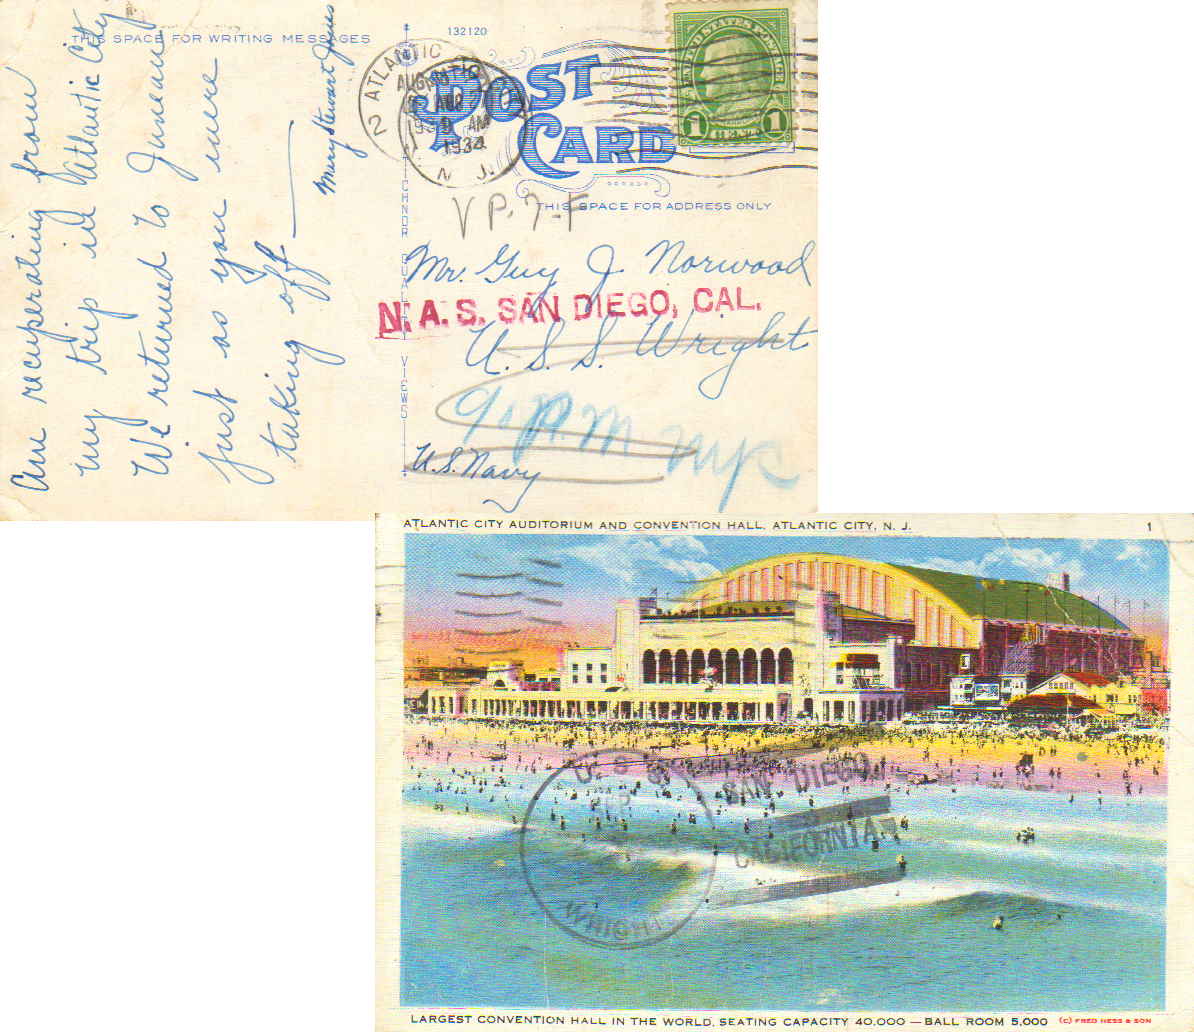 THIS SPACE FOR WRITING MESSAGES
132120
POST
CARD
THIS SPACE FOR ADDRESS ONLY
Am recuperating from
my trip in Atlantic City.
We returned to Juneau
just as you were
taking off —
Mary Stewart Jones
ATLANTIC
2
AUG
AUG
AM
1934
N. J.
UNITED STATES POSTAGE
1
1
VP-7-F
Mr. Guy J. Norwood
N. A. S. SAN DIEGO, CAL.
U. S. S. Wright
U.S. Navy
QUALITY VIEWS
ATLANTIC CITY AUDITORIUM AND CONVENTION HALL, ATLANTIC CITY, N. J.
1
U. S. S.
WRIGHT
SAN DIEGO,
CALIFORNIA.
LARGEST CONVENTION HALL IN THE WORLD, SEATING CAPACITY 40,000 — BALL ROOM 5,000
(C) FRED HESS & SON